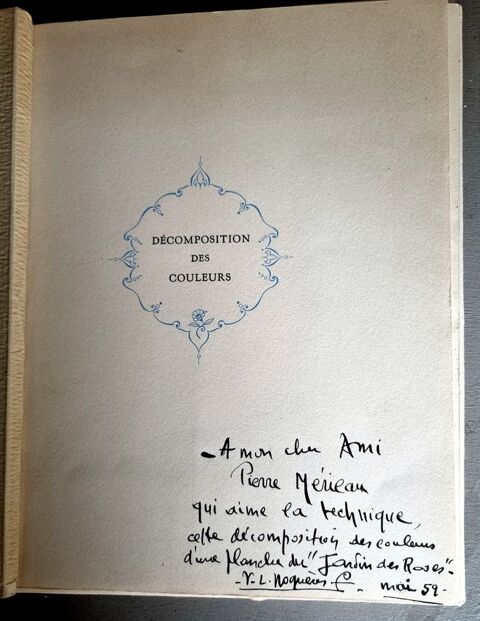 DÉCOMPOSITION
DES
COULEURS
- A mon cher Ami
Pierre Mérieau
qui aime la technique,
cette décomposition des couleurs
d'une planche du "Jardin des Roses" -
- mai 59 -